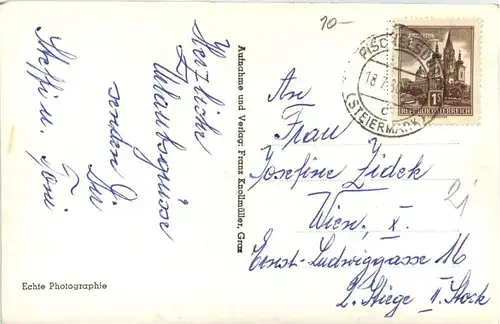 10-
Herzliche
Urlaubsgrüsse
senden Dir
Steffi u. Toni
Echte Photographie
Aufnahme und Verlag: Franz Knollmüller, Graz
PISCHELSDORF
18.7.
(STEIERMARK)
1S
REPUBLIK ÖSTERREICH
An
Frau
Josefine Zidek
Wien, X.
Ernst-Ludwiggasse 16
2. Stiege II. Stock